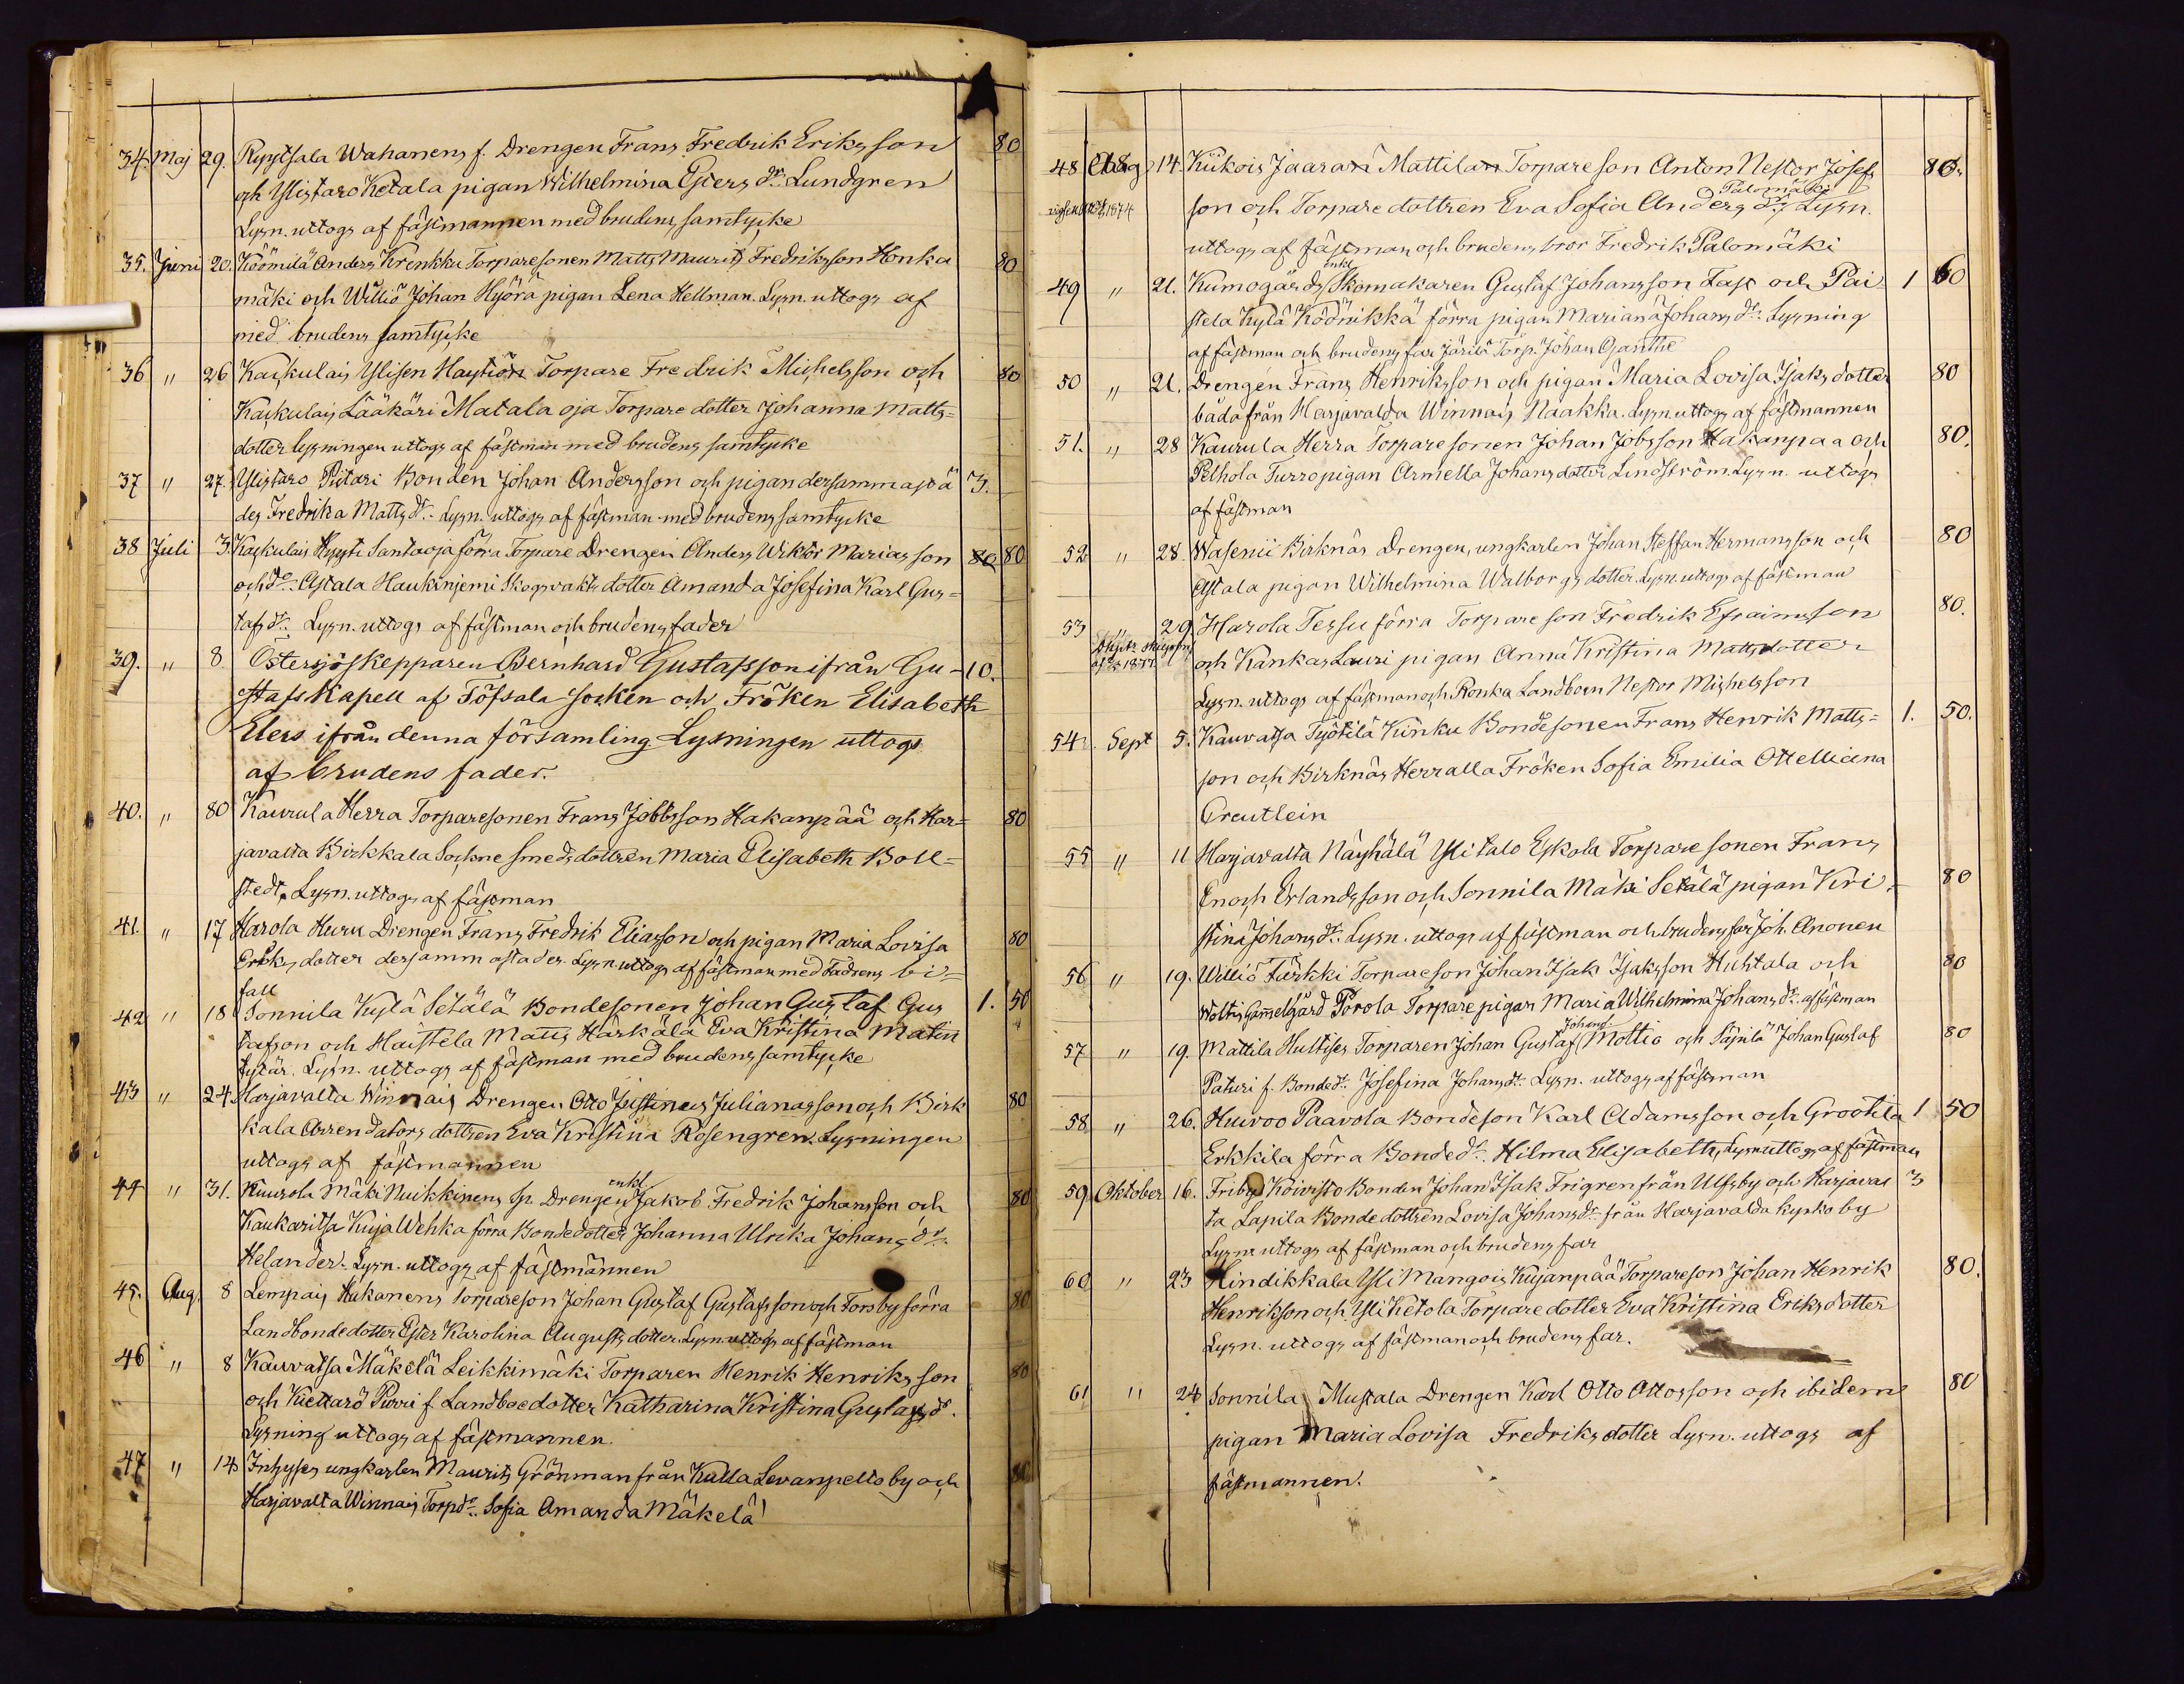 34. Maj 29. Ryytsala Wahanens f. Drengen Frans Fredrik Eriksson 80
och Ylistaro Ketala pigan Wilhelmina Esters dr. Lundgren
Lysn. uttogs af fästmannen med brudens samtycke
35. Juni 20. Köömilä Anders Krenkku Torparesonen Matts Maurits Fredriksson Honka 80
mäki och Williö Johan Hyörä pigan Lena Hellman. Lysn. uttogs af
med brudens samtycke
36 " 26 Kaskulais Ylisen Haytiön Torpare Fredrik Michelsson och 80
Kaskulais Lääkäri Matala oja Torpare dotter Johanna Matts=
dotter lysningen uttogs af fästman med brudens samtycke
37 " 27. Ylistaro Piitari Bonden Johan Andersson och pigan dersammastä 3.
des Fredrika Matts dr. Lysn. uttogs af fästman med brudens samtycke
38 Juli 3. Kaskulais Hyysti Santaoja förra Torpare Drengen Anders Wiktor Mariasson 80 80
och do. Astala Haukinjemi Skogsvakts dotter Amanda Josefina Karl Gus=
tafs dr. Lysn. uttogs af fästman och brudens fader
39. " 8. Östersjöskepparen Bernhard Gustafsson ifrån Gu- 10.
stafs Kapell af Töfsala socken och Fröken Elisabeth
Elers ifrån denna församling Lysningen uttogs
af brudens fader.
40. " 80 Kaurula Herra Torparesonen Frans Jobbsson Hakanpää och Har= 80
javalta Birkkala Sockne smeds dottren Maria Elisabeth Boll=
stedt. Lysn. uttogs af fästman
41. " 17 Harola Huru Drengen Frans Fredrik Eliasson och pigan Maria Lovisa 80
Eriks dotter dersammastädes. Lysn uttogs af fästman med Fadrens bi=
fall
42 " 18 Sonnila Kylä Setälä Bondesonen Johan Gustaf Gus 1. 50
tafson och Haistela Matts Härkälä Eva Kristina Matin
tytär. Lysn. uttogs af fästman med brudens samtycke
43 " 24. Harjavalta Winnais Drengen Otto Justinus Julianasson och Birk 80
kala Arrendators dottren Eva Kristina Rosengren. Lysningen
uttogs af fästmannen
44 " 31. Kuurola Mäki Nuikkinens Sp. Drengen enkl. Jakob Fredrik Johansson och 80
Kaukaritsa Kuja Wehka förra Bondedotter Johanna Ulrika Johans dr.
Helander. Lysn. uttogs af fästmännen
45. Aug. 8 Lempais Hakanens Torpareson Johan Gustaf Gustafsson och Forsby förra 80
Landbondedotter Ester Karolina Augusts dotter. Lysn. uttogs af fästman
46 " 8 Kauvatsa Mäkelä Leikkimäki Torparen Henrik Henriksson 80
och Kiettarö Purri f. Landboedotter Katharina Kristina Gustafs dr.
Lysning uttogs af fästmannen.
47 " 14 Inhyses ungkarlen Maurits Grönman från Kulla Levanpelto by och 80
Harjavalta Winnais Torp dr. Sofia Amanda Mäkelä
48 Aug 14. Kiikois Jaaran Mattilan Torpareson Anton Nestor Josefs 80.
son och Torpare dottren Eva Sofia Anders dr. Palomäki Lysn.
uttogs af fästman och brudens bror Fredrik Palomäki
49 " 21. Kumogårds enkl Skomakaren Gustaf Johansson Fast och Pai 1 60
stela Kylä Köönikkä förra pigan Mariana Johans dr. Lysning
af fästman och brudens far Järilä Torp. Johan Ojanthe
50 " 21. Drengen Frans Henriksson och pigan Maria Lovisa Isaks dotter 80
båda från Harjavalda Winnais Naakka. Lysn uttogs af fästmannen
51. " 28 Kaurula Herra Torparesonen Johan Jobsson Hakanpaa och 80.
Pelhola Turro pigan Armella Johans dotter Lindström. Lysn. uttogs
af fästman
52 " 28. Wasenii Birknäs Drengen, ungkarlen Johan Steffan Hermansson och 80
Astala pigan Wilhelmina Walborgs dotter. Lysn. uttogs af fästman
53 " 29 Harola Tersu förra Torpareson Fredrik Efraimsson 80.
och Kankas Lauri pigan Anna Kristina Mattsdotter
Lysn. uttogs af fästman och Ronka Landboen Nestor Michelsson
54. Sept 5. Kauvatsa Työtilä Kinku Bondesonen Frans Henrik Matts= 1. 50.
son och Birknäs Herralla Fröken Sofia Emilia Ottelliana
Creutlein
55 " 11 Harjavalta Näyhälä Ylitalo Eskola Torparesonen Frans
Enoch Erlandsson och Sonnila Mäki Setälä pigan Kri- 80
stina Johans dr. Lysn. uttogs af fästman och brudens far Joh. Anonen
56 " 19. Williö Türkki Torpareson Johan Isak Isaksson Huhtala och 80
Woltis Gammelgård Porola Torpare pigan Maria Wilhelmina Johans dr. af fästman
57 " 19. Mattila Hultises Torparen Johan Gustaf Johans. Mottis och Säpilä Johan Gustaf 80
Paturi f. Bonde dr. Josefina Johans dr. Lysn. uttogs af fästman
58 " 26. Huivoo Paavola Bondeson Karl Adamsson och Grootila 1 50
Erkkila förra Bonde dr. Hilma Elisabeth, Lysn uttogs af fästman
59 Oktober 16. Friby Koivisto Bonden Johan Isak Frigren från Ulfsby och Harjaval 3
ta Lapila Bonde dottren Lovisa Johans dr. från Harjavalda kyrko by
Lysn uttogs af fästman och brudens far
60 " 23 Hindikkala Yli Mangois Kujanpää Torpareson Johan Henrik 80.
Henriksson och Yli Ketola Torpare dotter Eva Kristina Eriksdotter
Lysn. uttogs af fästman och brudens far.
61 " 24 Sonnila Mustala Drengen Karl Otto Ottosson och ibidem 80
pigan Maria Lovisa Fredriks dotter Lysn. uttogs af
fästmannen.